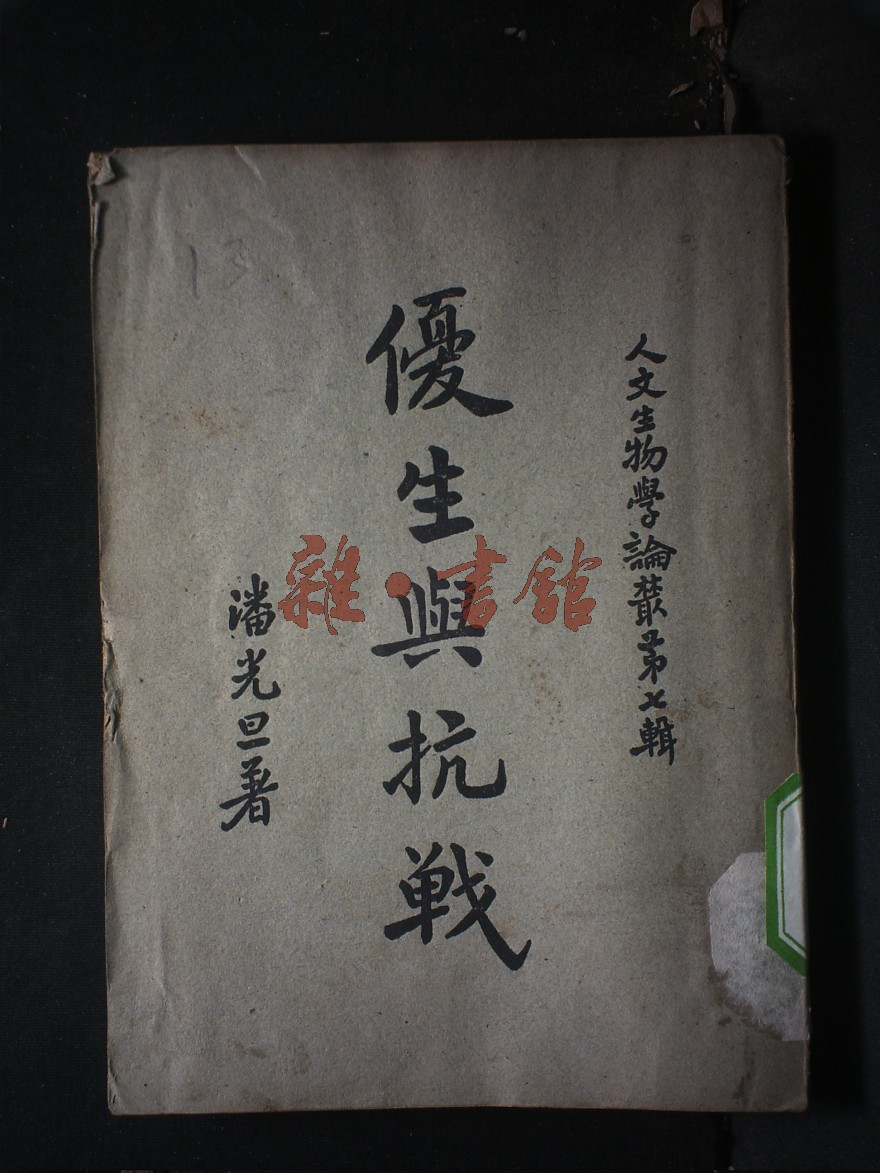 人文生物學論叢第七輯
優生與抗戰
潘光旦著
雜·書館
13